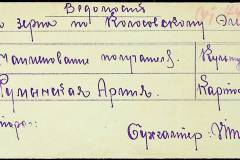 Ведомость
зерна по Колосовскому Эле
Наименование получателя. Культ
Румынская Армия. Карто
тора: Бухгалтер